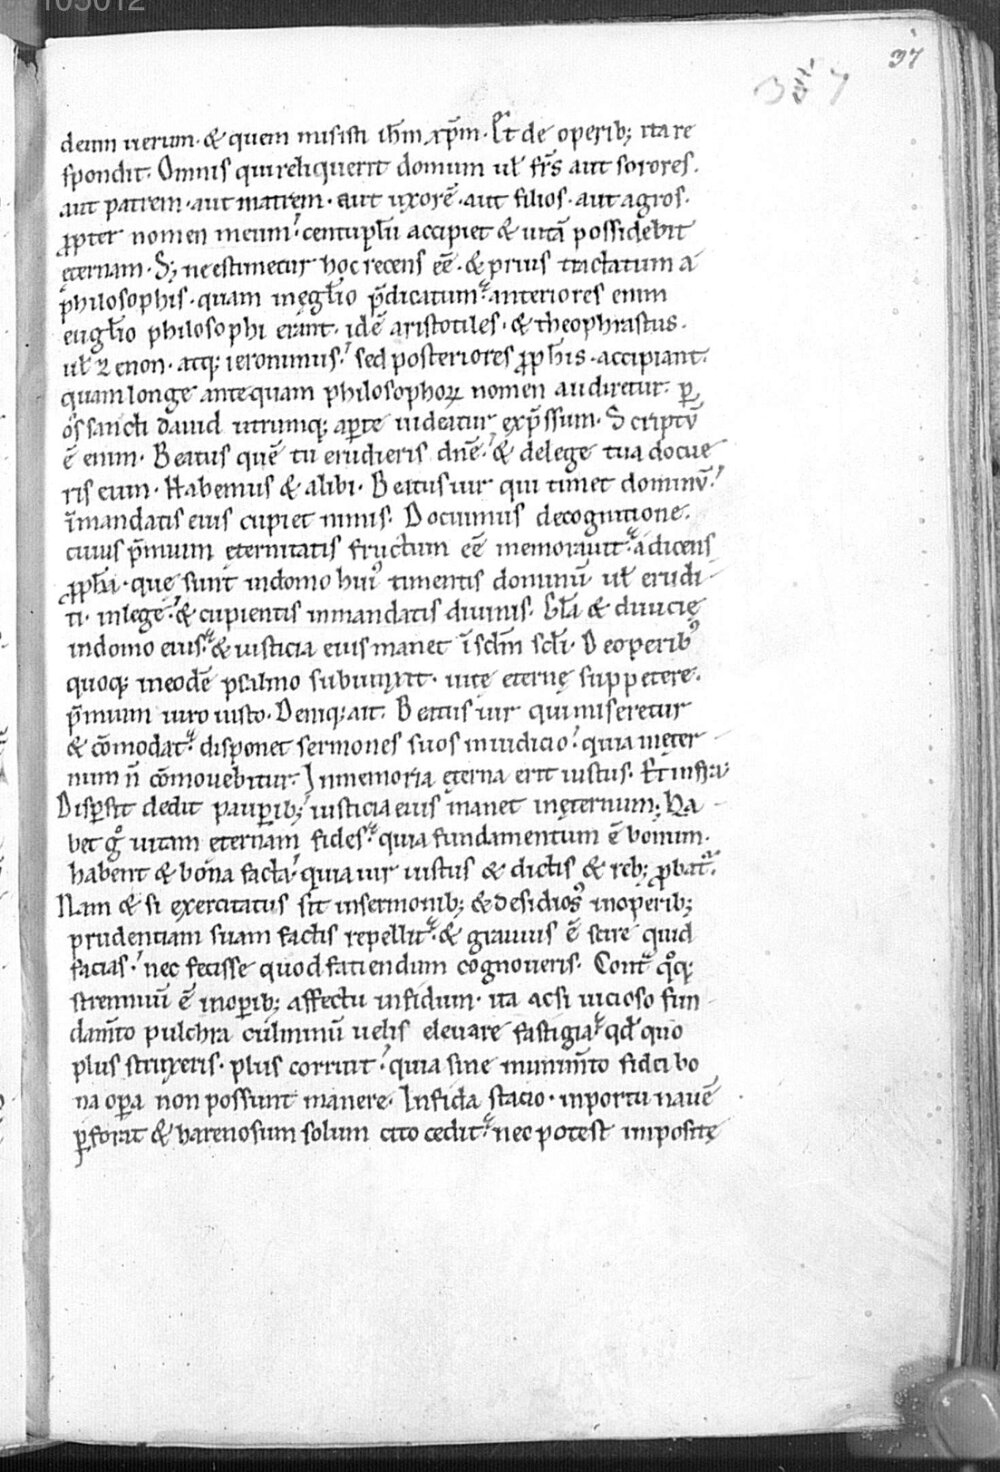 105012
37
3 7
deum uerum· & quem misisti ihm̄ xp̄m· Et de operib; ita re
spondit· Omnis qui reliquerit domum ul̄ fr̄s aut sorores·
aut patrem· aut matrem· aut uxorē· aut filios· aut agros·
ꝓpter nomen meum· centuplū accipiet & uitā possidebit
ęternam· S; ne estimetur hoc recens eē· & prius tractatum a
philosophis· quam in ęuglīo p̄dicatum· anteriores enim
euglīo philosophi erant· idē aristotiles· & theophrastus·
ul̄ zenon· atq; ieronimus· sed posteriores ꝓphīs· accipiant·
quam longe antequam philosophoꝝ nomen audiretur· ꝑ
os sancti dauid utrumq; aꝑte uideatur exp̄ssum· Scriptū
ē enim· Beatus quē tu erudieris dn̄e· & delege tua docue
ris eum· Habemus & alibi· Beatus uir qui timet dominū·
īmandatis eius cupiet nimis· Docuimus decognitione·
cuius p̄mium ęternitatis fructum eē memorauit· adicens
ꝓphā· quę sunt indomo hui᾽ timentis dominū ul̄ erudi-
ti· inlege· & cupientis inmandatis diuinis· Gl̄a & diuicię
indomo eius· & iusticia eius manet ī sclm̄ scl̄i· Deoperib᾽
quoq; ineodē psalmo subiunxit· uitę eternę suppetere·
p̄mium uiro iusto· Deniq; ait· Beatus uir qui miseretur
& cōmodat· disponet sermones suos iniudicio· quia inęter-
num n̄ cōmouebitur· Inmemoria ęterna erit iustus· Et infra·
Disꝑsit dedit pauꝑib; iusticia eius manet inęternum; Ha-
bet gͦ uitam ęternam fides· quia fundamentum ē bonum·
habent & bona facta· quia uir iustus & dictis & reb; ꝓbat᷑·
Nam & si exercitatus sit insermonib; & desidios᾽ inoperib;
prudentiam suam factis repellit· & grauius ē scire quid
facias· nec fecisse quod faciendum cognoueris· Cont̄ qͦq;
strenuū ē inoꝑib; affectu infidum· ita acsi uicioso fun-
dam̄to pulchra culminū uelis eleuare fastigia· qd̄ quo
plus struxeris· plus corruit· quia sine munim̄to fidei bo
na oꝑa non possunt manere· Infida stacio· inportu nauē
ꝑforat & harenosum solum cito cedit· nec potest impositę